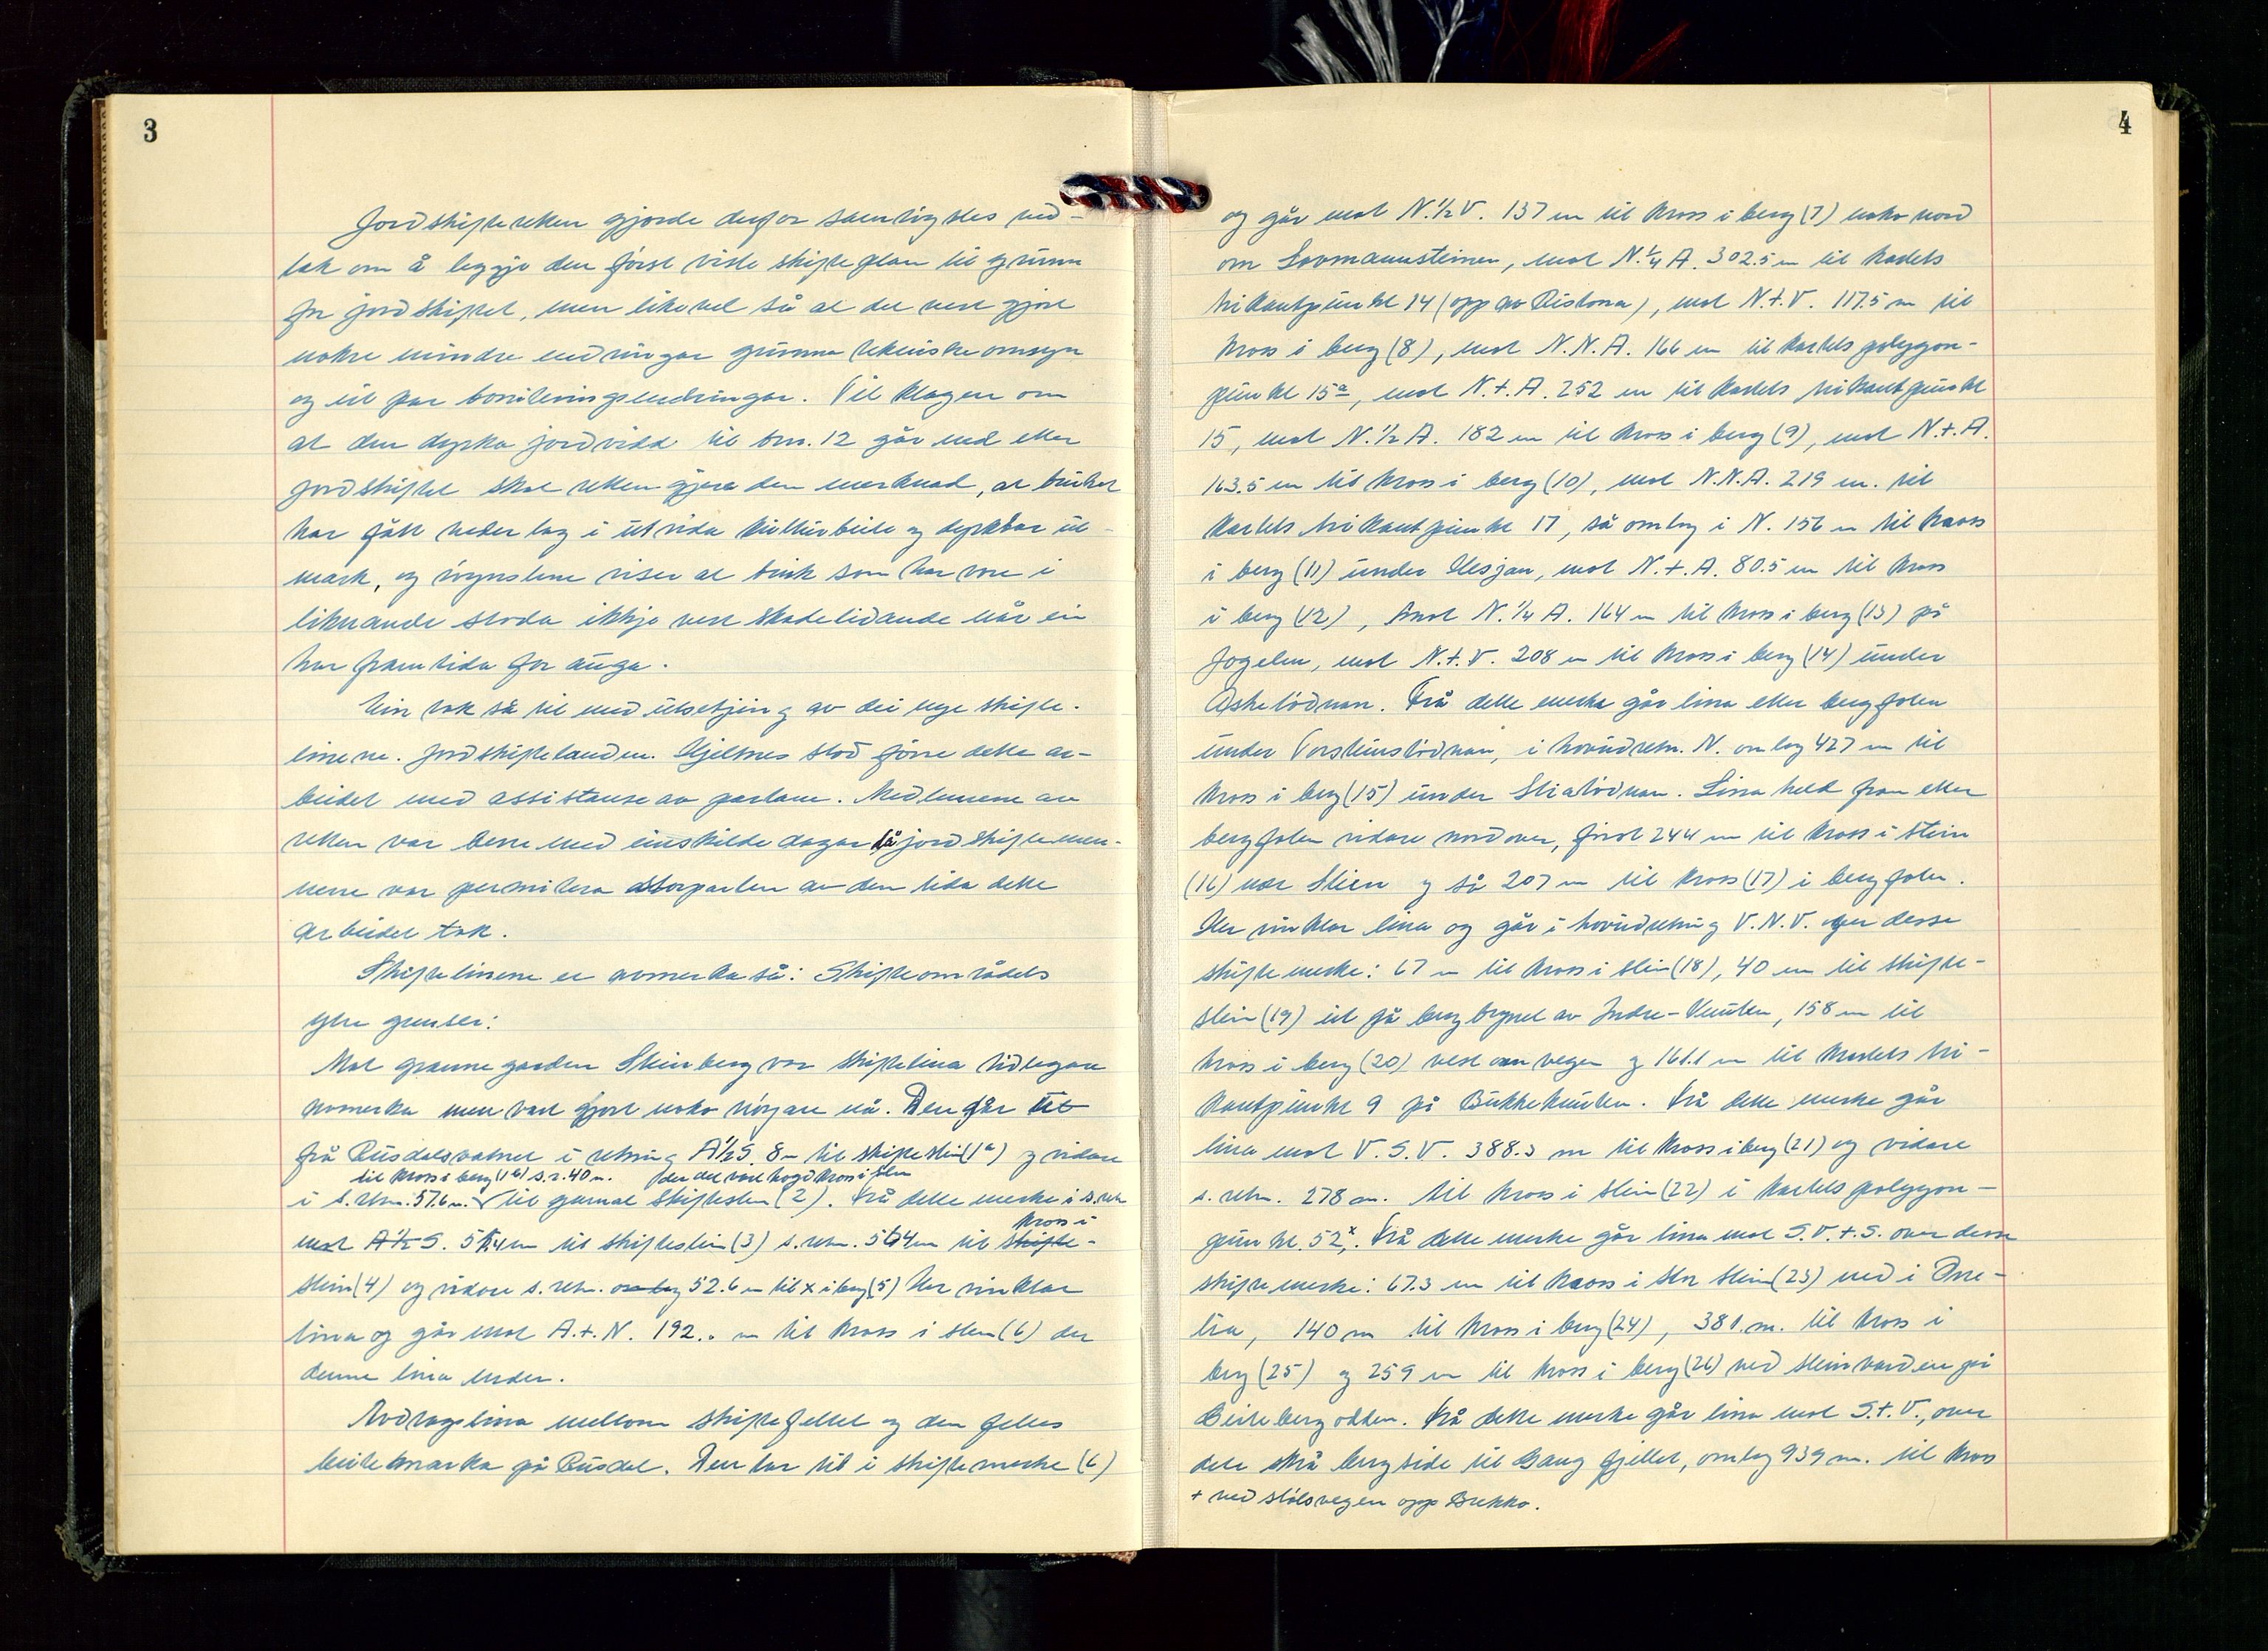 3
Jordskifteretten gjorde derfor samrøystes ved-
tak om å leggje den først viste skifteplan til grunn
for jordskiftet, men likevel så at det vert gjort
nokre mindre endringar grunna tekniske omsyn
og eit par boniteringsendringar. Til klagen om
at den dyrka jordvidd til bnr. 12 går ned etter
jordskiftet skal retten gjera den merknad, at bruket
har fått vederlag i utvida kulturbeite og dyrkbar ut-
mark, og røynslene viser at bruk som har vore i
liknande stoda ikkje vert skadelidande når ein
har framtida for auga.
Ein tok så til med utsetjing av dei nye skifte-
linene. Jordskiftekand. Hjeltnes stod føre dette ar-
beidet med assistanse av partane. Medlemene av
retten var berre med einskilde dagar då jordskiftemen-
nene var permitera storparten av den tida dette
arbeidet tok.
Skiftelinene er avmerka så: Skifteområdets
ytre grenser:
Mot grannegarden Steinberg var skiftelina tidlegare
avmerka men vart gjort noko nøyare nå. Den går ut
frå Rusdalsvatnet i retning A½S. 8 m til skiftestein (1a) og vidare
til kross i berg (1b) s.r. 40 m. der det vart hogd kross i stein
i s. retn. 57.6 m. til gamal skiftestein (2). Frå dette merke i s. retn
mot A½S. 57.4 m til skiftestein (3) s. retn. 564 m til kross i skifte-
stein (4) og vidare s. retn. omlag 52.6 m til x i berg (5) Her vinklar
lina og går mot A.t.N. 192.. m til kross i stein (6) der
denne lina ender.
Avdragslina mellom skiftefeltet og den felles
beitemarka på Rusdal. Den tar til i skiftemerke (6)
4
og går mot N.½V. 137 m til kross i berg (7) noko nord
om Lovmannsteinen, mot N.¼A. 302.5 m til kartets
trikantpunkt 14 (opp av Ristona), mot N.t.V. 117.5 m til
kross i berg (8), mot N.N.A. 166 m til kartets polygon-
punkt 15a, mot N.t.A. 252 m til kartets trikantpunkt
15, mot N.½A. 182 m til kross i berg (9), mot N.t.A.
163.5 m til kross i berg (10), mot N.N.A. 219 m. til
kartets trikantpunkt 17, så omlag i N. 156 m til kross
i berg (11) under Hesjan, mot N.t.A. 80.5 m til kross
i berg (12), mot N.¼A. 164 m til kross i berg (13) på
Jogelen, mot N.t.V. 208 m til kross i berg (14) under
Oskelødnan. Frå dette merke går lina etter bergfoten
under Torsteinslødnan, i hovudretn. N. omlag 427 m til
kross i berg (15) under Stialødnan. Lina held fram etter
bergfoten vidare nordover, først 244 m til kross i stein
(16) nær Stien og så 207 m til kross (17) i bergfoten.
Her vinklar lina og går i hovudretning V.N.V. over desse
skiftemerke: 67 m til kross i stein (18), 40 m til skifte-
stein (19) ut på bergbrynet av Indre-Knuten, 158 m til
kross i berg (20) vest om vegen og 161.1 m til kartets tri-
kantpunkt 9 på Bukkeknuten. Frå dette merke går
lina mot V.S.V. 388.3 m til kross i berg (21) og vidare
s. retn. 278 m. til kross i stein (22) i kartets polygon-
punkt 52x. Frå dette merke går lina mot S.V.t.S. over desse
skiftemerke: 67.3 m til kross i stor stein (23) ned i Orre-
lia, 140 m til kross i berg (24), 381. m. til kross i
berg (25) og 259 m til kross i berg (26) ved steinvarden på
Beitebergodden. Frå dette merke går lina mot S.t.V., over
dete skrå bergside til Gaugfjellet, omlag 939 m. til kross
+ ved stølsvegen opp Brekko.